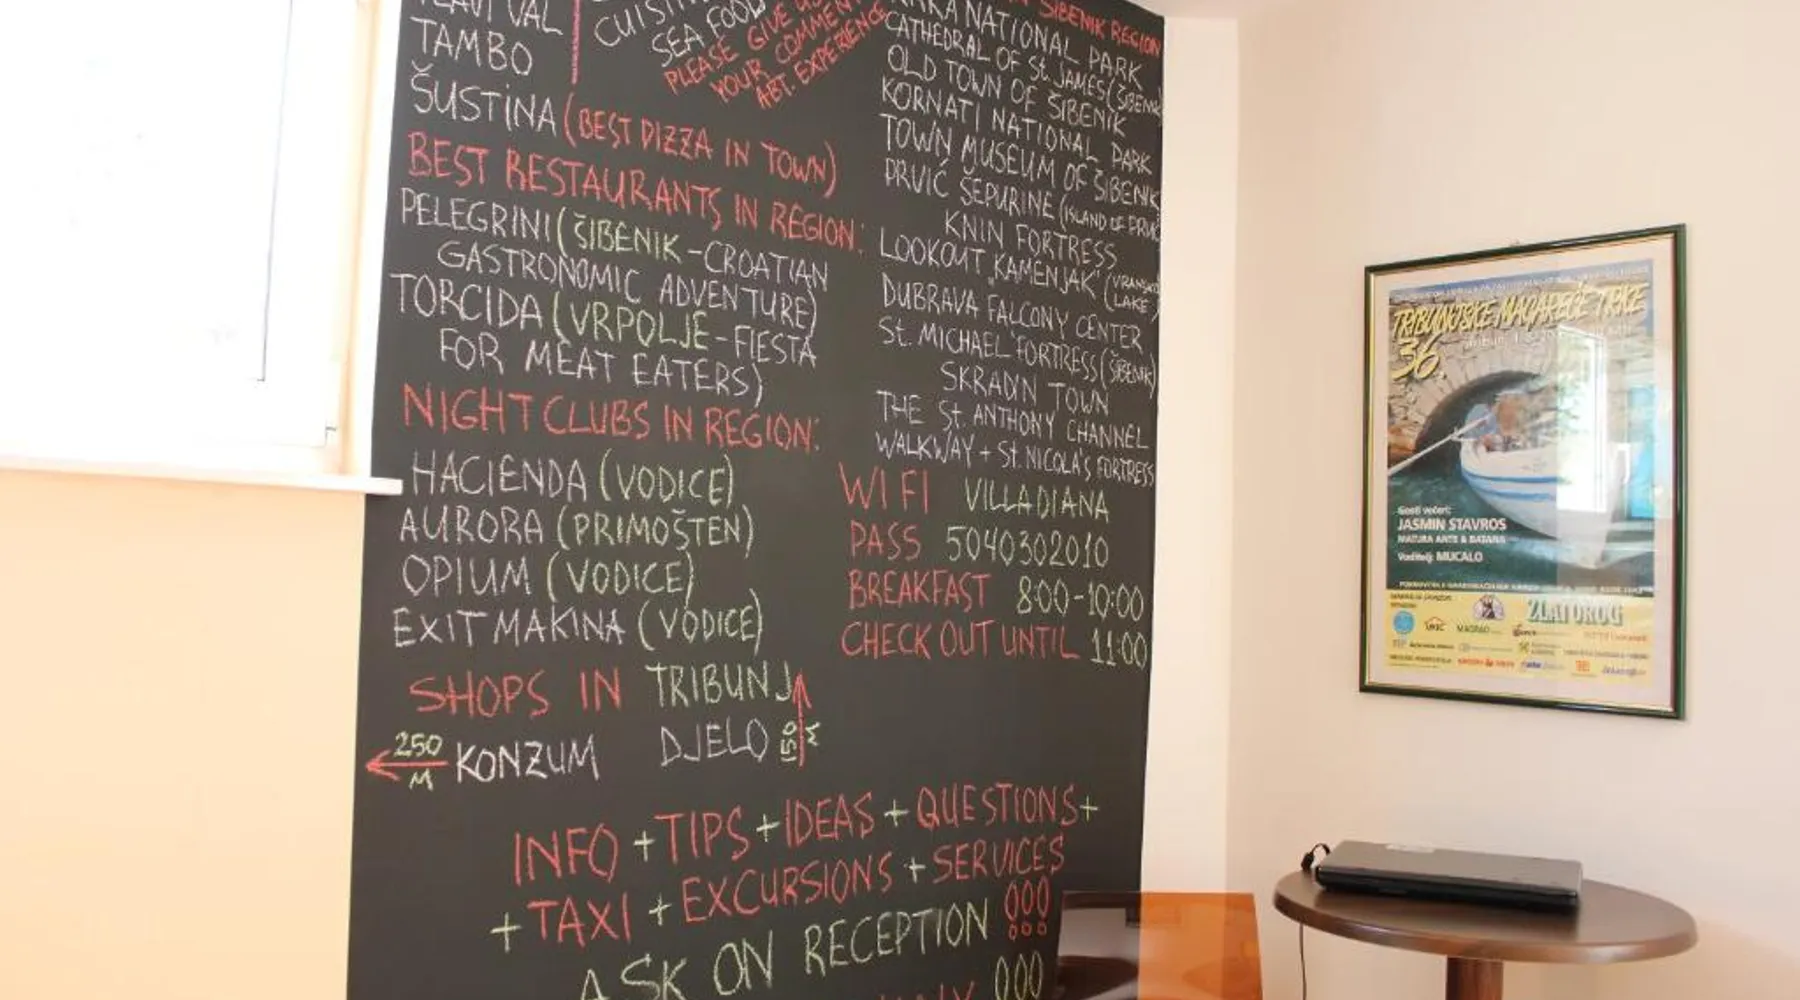 TAMBO
ŠUSTINA (BEST PIZZA IN TOWN)
BEST RESTAURANTS IN REGION:
PELEGRINI (ŠIBENIK-CROATIAN
GASTRONOMIC ADVENTURE)
TORCIDA (VRPOLJE-FIESTA
FOR MEAT EATERS)
NIGHT CLUBS IN REGION:
HACIENDA (VODICE)
AURORA (PRIMOŠTEN)
OPIUM (VODICE)
EXIT MAKINA (VODICE)
SHOPS IN TRIBUNJ
250 M KONZUM
DJELO 150 M
SEA FOOD
PLEASE GIVE US
YOUR COMMENT
ABT. EXPERIENCE
ŠIBENIK REGION
NATIONAL PARK
CATHEDRAL OF St. JAMES (ŠIBENIK
OLD TOWN OF ŠIBENIK
KORNATI NATIONAL PARK
TOWN MUSEUM OF ŠIBENIK
PRVIĆ ŠEPURINE (ISLAND OF PRVIĆ
KNIN FORTRESS
LOOKOUT „KAMENJAK" (VRANSKO
LAKE)
DUBRAVA FALCONY CENTER
St. MICHAEL FORTRESS (ŠIBENIK)
SKRADIN TOWN
THE St. ANTHONY CHANNEL
WALKWAY + St. NICOLA'S FORTRESS
WI FI VILLADIANA
PASS 5040302010
BREAKFAST 8:00-10:00
CHECK OUT UNTIL 11:00
INFO + TIPS + IDEAS + QUESTIONS +
+ TAXI + EXCURSIONS + SERVICES
ASK ON RECEPTION !!!
TRIBUNJSKE MAGAREĆE TRKE
36
Gosti večeri:
JASMIN STAVROS
MATURA ANTE & BATANA
Voditelj: MUCALO
ZLATOROG